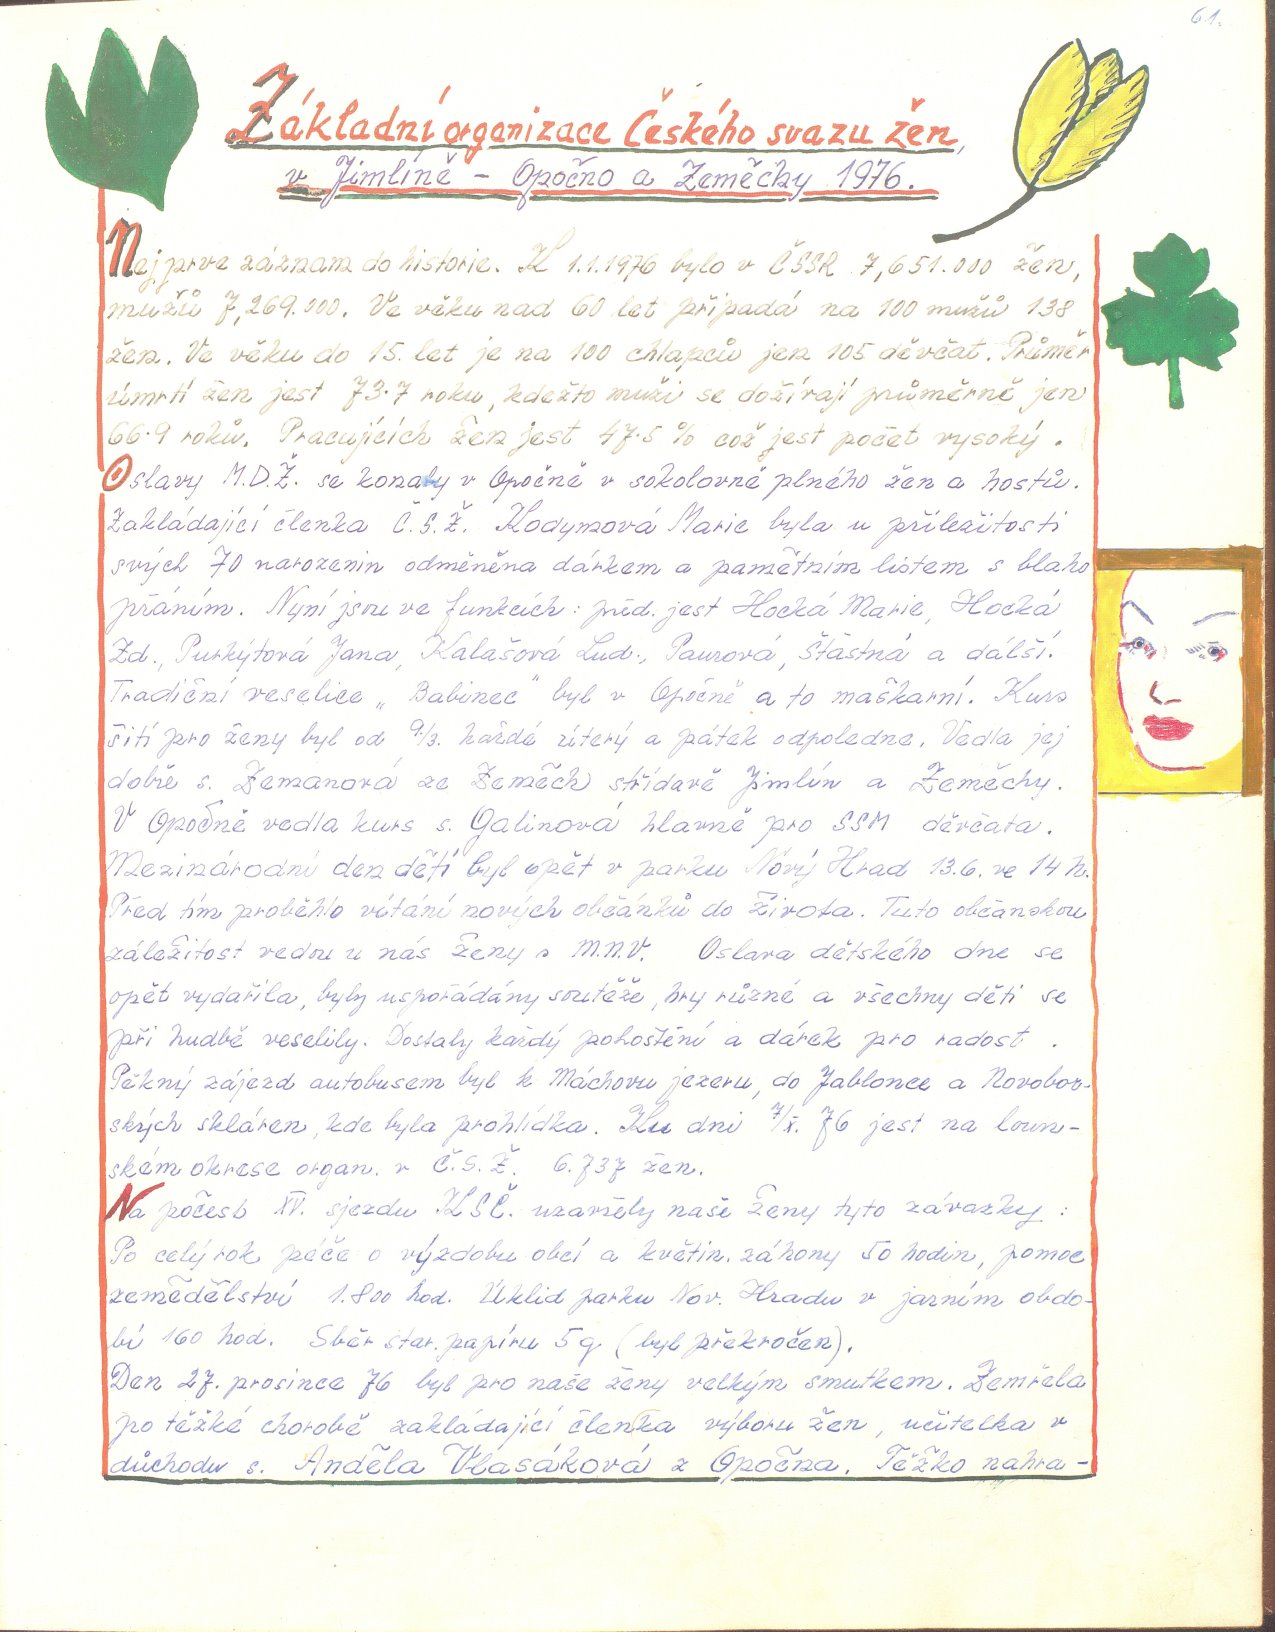 61.
Základní organizace Českého svazu žen,
v Jimlíně - Opočno a Zeměchy 1976.
Nejprve záznam do historie. K 1.1.1976 bylo v ČSSR 7,651.000 žen,
mužů 7,269.000. Ve věku nad 60 let připadá na 100 mužů 138
žen. Ve věku do 15. let je na 100 chlapců jen 105 děvčat. Průměr
úmrtí žen jest 73.7 roku, kdežto muži se dožívají průměrně jen
66.9 roků. Pracujících žen jest 47.5 % což jest počet vysoký.
Oslavy M.D.Ž. se konaly v Opočně v sokolovně plného žen a hostů.
Zakládající členka Č.S.Ž. Kodymová Marie byla u příležitosti
svých 70 narozenin odměněna dárkem a pamětním listem s blaho
přáním. Nyní jsou ve funkcích: před. jest Hocká Marie, Hocká
Zd., Purkýtová Jana, Kalašová Lud., Paurová, Šťastná a dálší.
Tradiční veselice „Babinec" byl v Opočně a to maškarní. Kurs
šití pro ženy byl od 9/3. každé úterý a pátek odpoledne. Vedla jej
dobře s. Zemanová ze Zeměch střídavě Jimlín a Zeměchy.
V Opočně vedla kurs s. Galinová hlavně pro SSM děvčata.
Mezinárodní den dětí byl opět v parku Nový Hrad 13.6. ve 14 h.
Před tím proběhlo vítání nových občánků do života. Tuto občanskou
záležitost vedou u nás ženy s M.N.V. Oslava dětského dne se
opět vydařila, byly uspořádány soutěže, hry různé a všechny děti se
při hudbě veselily. Dostaly každý pohoštění a dárek pro radost.
Pěkný zájezd autobusem byl k Máchovu jezeru, do Jablonce a Novobor-
ských skláren, kde byla prohlídka. Ku dni 7/X. 76 jest na loun-
ském okrese organ. v Č.S.Ž. 6.737 žen.
Na počest XV. sjezdu KSČ. uzavřely naše ženy tyto závazky:
Po celý rok péče o výzdobu obcí a květin. záhony 50 hodin, pomoc
zemědělství 1.800 hod. Úklid parku Nov. Hradu v jarním obdo-
bí 160 hod. Sběr star. papíru 5 q (byl překročen).
Den 27. prosince 76 byl pro naše ženy velkým smutkem. Zemřela
po těžké chorobě zakládající členka výboru žen, učitelka v
důchodu s. Anděla Vlasáková z Opočna. Těžko nahra-